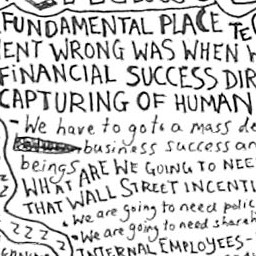 FUNDAMENTAL PLACE TEC
ENT WRONG WAS WHEN W
FINANCIAL SUCCESS DIR
CAPTURING OF HUMAN
- We have to got a mass de
business success an
beings
ARE WE GOING TO NEE
WHAT
STREET INCENTI
THAT WALL
• We are going to need polic
• We are going to need shareh
INTERNAL EMPLOYEES-
Z
Z
Z Z Z Z